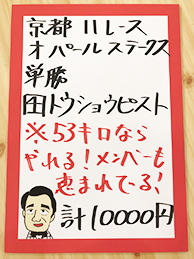 京都11レース
オパールステークス
単勝
田トウショウピスト
※53キロなら
やれる!メンバーも
恵まれてる!
計10000円